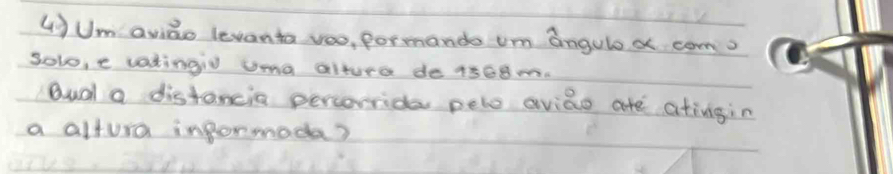 4) Um avião levanta voo, formando um ângulo α com o
solo, e catingiu uma altura de 1368m.
Qual a distancia percorrida pelo avião até atingin
a altura informada?